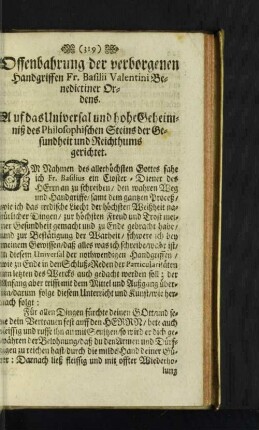 (319)
Offenbahrung der verborgenen
Handgriffen Fr. Basilii Valentini Be-
nedictiner Or-
dens.
Auf das Universal und hohe Geheim-
niß des Philosophischen Steins der Ge-
sundheit und Reichthums
gerichtet.
IM Nahmen des allerhöchsten Gottes fahe
ich Fr. Basilius ein Closter-Diener des
HErrn an zu schreiben, den wahren Weg
und Handgriffe, samt dem gantzen Proceß,
wie ich das irrdische Liecht der höchsten Weißheit na-
türlicher Dingen, zur höchsten Freud und Trost mei-
ner Gesundheit gemacht und zu Ende gebracht habe,
und zur Bestättigung der Warheit, schwere ich in
meinem Gewissen, daß alles was ich schreibe, wahr ist,
in diesem Universal der nothwendigen Handgriffen,
wie zu Ende in den Schluß-Reden der Particularitäten
am letzten des Wercks auch gedacht werden soll; der
Anfang aber trifft mit dem Mittel und Außgang über-
ein, darum folge diesem Unterricht und Kunst, wie her-
nach folgt:
Für allen Dingen fürchte deinen GOtt, und se-
tze dein Vertrauen fest auff den HERRN, bete auch
fleissig und ruffe ihn an mit Seufftzen so wird er dich ge-
währen der Belohnung, daß du den Armen und Dürff-
tigen zu reichen hast durch die milde Hand deiner Gü-
ter: Darnach ließ fleissig und mit offter Wiederho-
lung